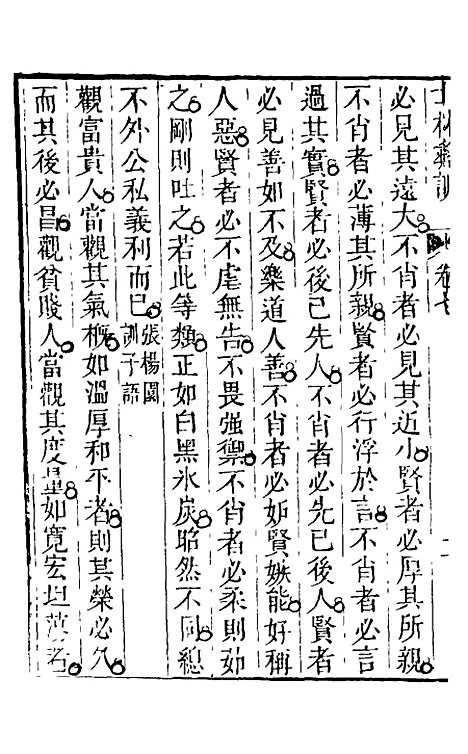 士林彝訓 卷七
必見其遠大不肖者必見其近小賢者必厚其所親
不肖者必薄其所親賢者必行浮於言不肖者必言
過其實賢者必後己先人不肖者必先己後人賢者
必見善如不及樂道人善不肖者必妒賢嫉能好稱
人惡賢者必不虐無告不畏强禦不肖者必柔則茹
之剛則吐之若此等類正如白黑氷炭昭然不同總
不外公私義利而已張楊園
訓子語
觀富貴人當觀其氣概如溫厚和平者則其榮必久
而其後必昌觀貧賤人當觀其度量如寬宏坦蕩者